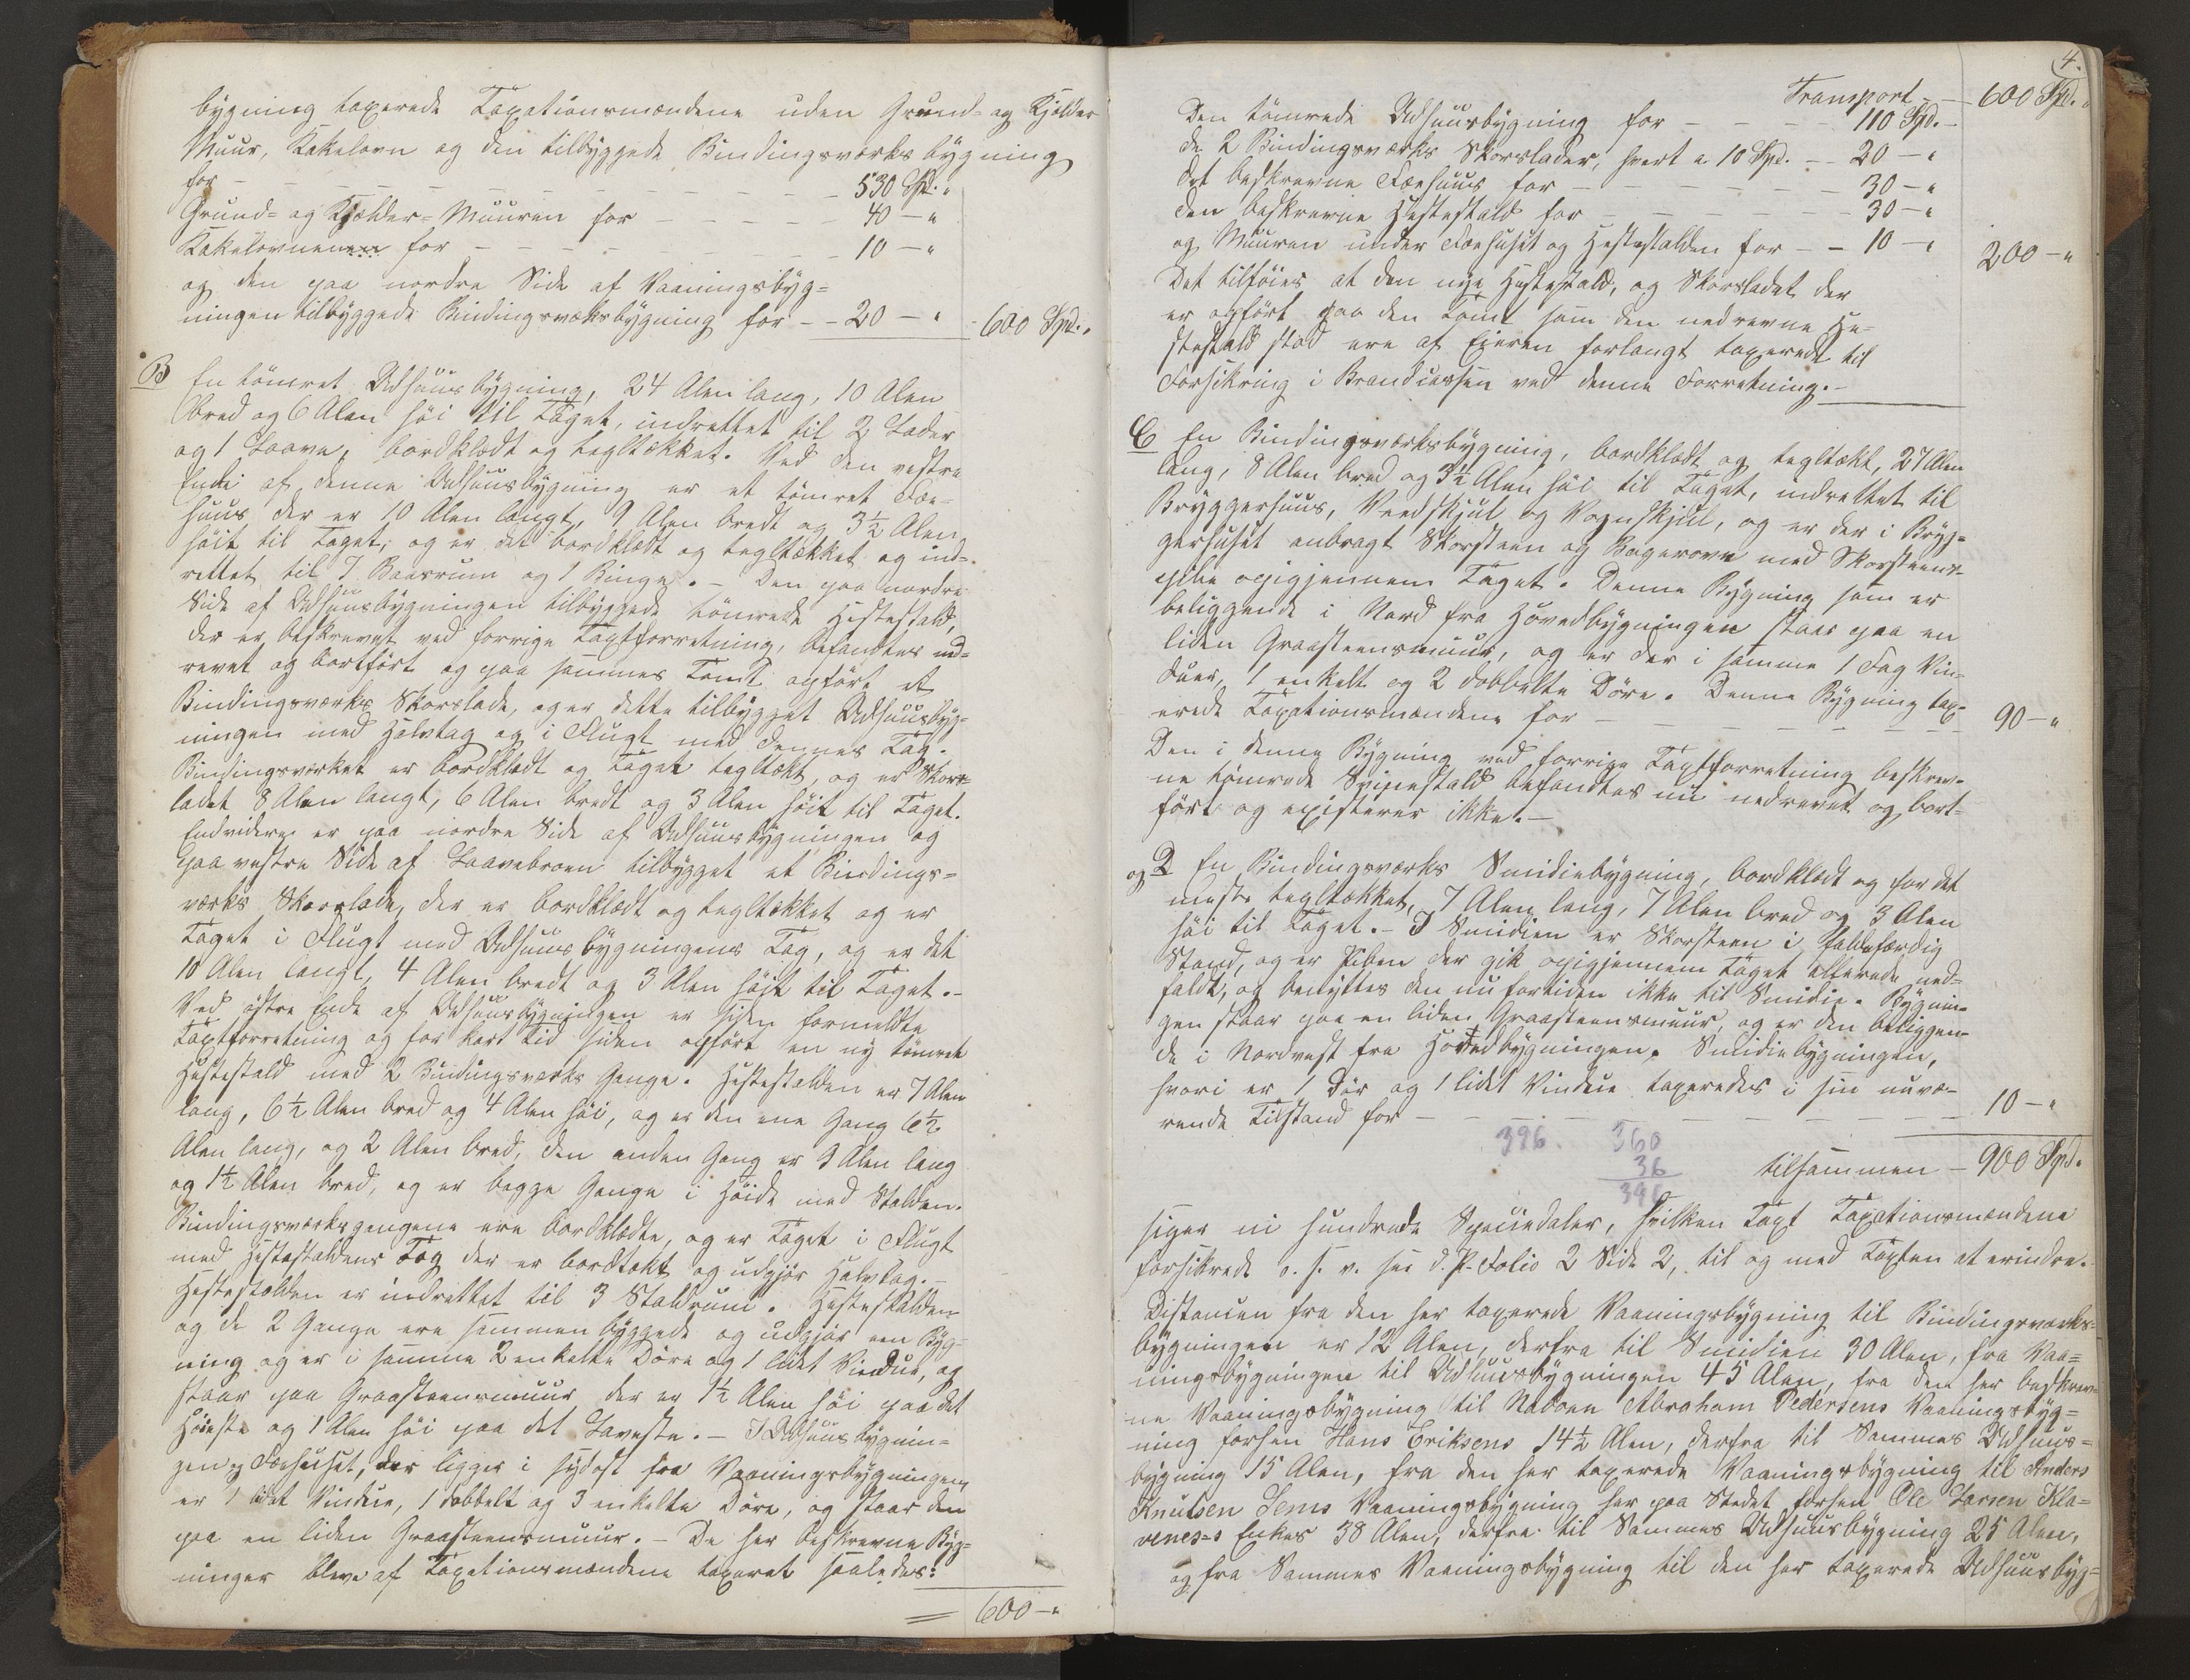 bygning taxerede Taxationsmændene uden Grund- og Kjelder
Muur, Kakelovn og den tilbyggede Bindingsværksbygning
for - - - - - - - - - - 530 Spd. "
Grund- og Kjelder-Muuren for - - - - - 40 — "
Kakelovnenene for - - - - - - - 10 — "
og den paa nordre Side af Vaaningsbyg=
ningen tilbyggede Bindingsværksbygning for - - 20 — " 600 Spd. "
B En tömret Udhuusbygning, 24 Alen lang, 10 Alen
bred og 6 Alen höi til Taget, indrettet til 2 Lader
og 1 Laave, bordklædt og tegltækket. Ved den vestre
Ende af denne Udhuusbygning er et tömret Fæe=
huus der er 10 Alen langt, 9 Alen bredt og 3½ Alen
höit til Taget, og er det bordklædt og tegltækket og ind=
rettet til 7 Baasrum og 1 Binge. - Den paa nordre
Side af Udhuusbygningen tilbyggede tömrede Hestestald,
der er beskrevet ved forrige Taxtforretning, befandtes ned=
revet og bortfört og paa sammes Tomt opfört et
Bindingsværks Skorslade, og er dette tilbygget Udhuusbyg=
ningen med Halvtag og i Flugt med dennes Tag.
Bindingsværket er bordklædt og Taget tegltækt, og er Skors=
ladet 8 Alen langt, 6 Alen bredt og 3 Alen höit til Taget.
Endvidere er paa nordre Side af Udhuusbygningen og
paa vestre Side af Laavebroen tilbygget et Bindings=
værks Skorslade, der er bordklædt og tegltækket og er
Taget i Flugt med Udhuusbygningens Tag, og er det
10 Alen langt, 4 Alen bredt og 3 Alen höit til Taget. -
Ved östre Ende af Udhuusbygningen er siden formeldte
Taxtforretning og for kort Tid siden opfört en ny tömret
Hestestald med 2 Bindingsværks Gange. Hestestalden er 7 Alen
lang, 6½ Alen bred og 4 Alen höi, og er den ene Gang 6½
Alen lang, og 2 Alen bred, den anden Gang er 9 Alen lang
og 1½ Alen bred, og er begge Gange i Höide med Stalden.
Bindingsværksgangene ere bordklædte, og er Taget i Flugt
med Hestestaldens Tag der er bordtækt og udgjör Halvtag. -
Hestestalden er indrettet til 3 Staldrum. Hestestalden
og de 2 Gange ere sammenbyggede og udgjör een Byg=
ning og er i samme 2 enkelte Döre og 1 lidet Vindue, og
staar paa Graasteensmuur der er 1½ Alen höi paa det
Höieste og 1 Alen höi paa det Laveste. - I Udhuusbygnin=
gen og Fæehuset, der ligger i Sydost fra Vaaningsbygningen,
er 1 lidet Vindue, 1 dobbelt og 3 enkelte Döre, og staar den
paa en liden Graasteensmuur. - De her beskrevne Byg=
ninger bleve af Taxationsmændene taxeret saaledes:
600 — "
4.
Transport - - 600 Spd. "
Den tömrede Udhuusbygning for - - - - 110 Spd. -
de 2 Bindingsværks Skorslader, hvert a 10 Spd. - - 20 — "
det beskrevne Fæehuus for - - - - - - 30 — "
den beskrevne Hestestald for - - - - - - 30 — "
og Muuren under Fæehuset og Hestestalden for - - 10 — " 200 — "
Det tilföies at den nye Hestestald, og Skorsladet der
er opfört paa den Tomt som den nedrevne He=
stestald stod ere af Eieren forlangt taxerede til
Forsikring i Brandcassen ved denne Forretning. -
C En Bindingsværksbygning, bordklædt og tegltækt, 27 Alen
lang, 8 Alen bred og 3½ Alen höi til Taget, indrettet til
Bryggerhuus, Vedskjul og Vognskjul, og er der i Bryg=
gerhuset anbragt Skorsteen og Bagerovn med Skorsteens=
pibe opigjennem Taget. Denne Bygning som er
beliggende i Nord fra Hovedbygningen staar paa en
liden Graasteensmuur, og er der i samme 1 Fag Vin=
duer, 1 enkelt og 2 dobbelte Döre. Denne Bygning tax=
erede Taxationsmændene for - - - - - - - - 90 — "
Den i denne Bygning ved forrige Taxtforretning beskrev=
ne tömrede Sviinestald befandtes nu nedrevet og bort=
fört og existerer ikke. -
og D En Bindingsværks Smidiebygning, bordklædt og for det
meste tegltækket, 7 Alen lang, 7 Alen bred og 3 Alen
höi til Taget. - I Smidien er Skorsteen i faldefærdig
Stand, og er Piben der gik opigjennem Taget allerede ned=
faldt, og benyttes den nu fortiden ikke til Smidie. Bygnin=
gen staar paa en liden Graasteensmuur, og er den beliggen=
de i Nordvest fra Hovedbygningen. Smidiebygningen,
hvori er 1 Dör og 1 lidet Vindue taxeredes i sin nuvæ=
rende Tilstand for - - - - - - - - - 10 — "
396. 360
36
396
tilsammen - 900 Spd.
siger ni hundrede Speciedaler, hvilken Taxt Taxationsmændene
forsikrede o. s. v. see d. P. Folio 2 Side 2, til og med Taxten at erindre.
Distancen fra den her taxerede Vaaningsbygning til Bindingsværks=
bygningen er 12 Alen, derfra til Smidien 30 Alen, fra Vaa=
ningsbygningen til Udhuusbygningen 45 Alen, fra den her beskrev=
ne Vaaningsbygning til Naboen Abraham Pedersens Vaaningsbyg=
ning forhen Hans Eriksens 14½ Alen, derfra til Sammes Udhuus=
bygning 15 Alen, fra den her taxerede Vaaningsbygning til Anders
Knutsen Sems Vaaningsbygning her paa Stedet forhen Ole Larsen Kla=
venes-s Enkes 38 Alen, derfra til Sammes Udhuusbygning 25 Alen,
og fra Sammes Vaaningsbygning til den her taxerede Udhuusbyg=